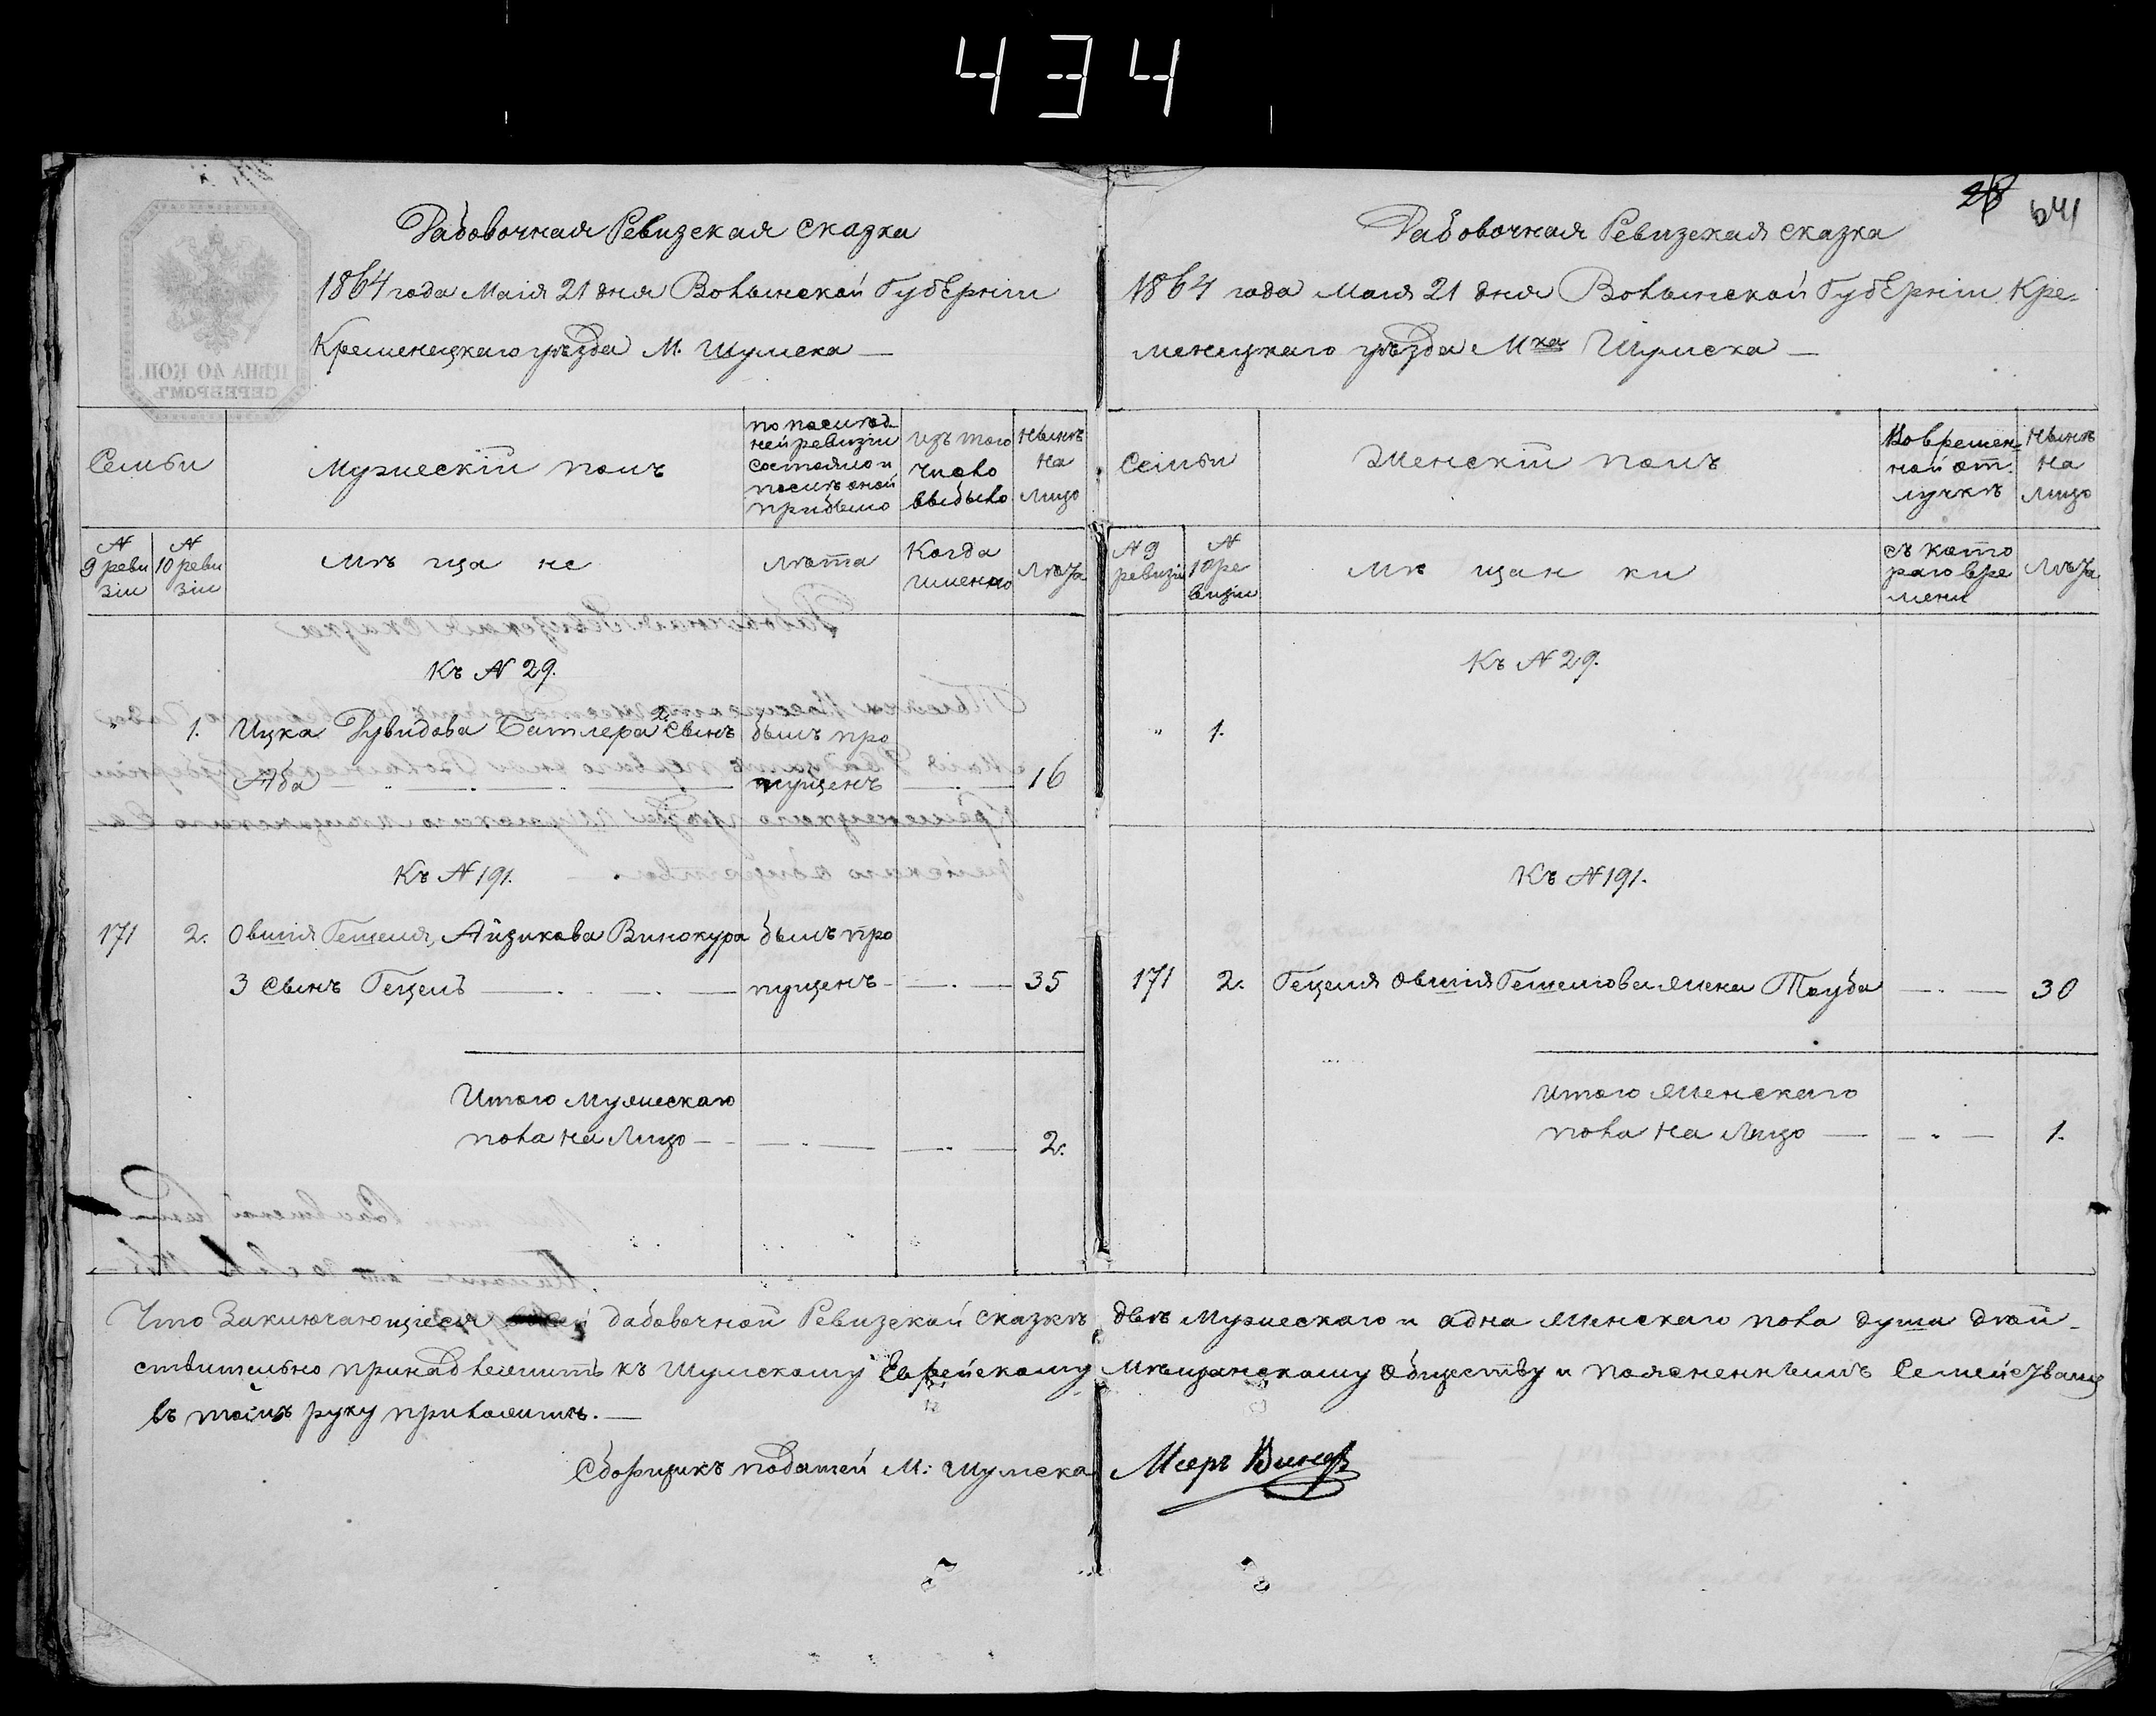 434
28 541
Дабовочная Ревизская сказка
1864 года Маія 21 дня Волынской Губерніи
Кременецкаго уѣзда М. Шумска —
ЦѢНА 40 КОП.
СЕРЕБРОМЪ
Семьи
Мужескій полъ
по послѣд-
ней ревизіи
состояло и
послѣ оной
прибыло
изъ того
число
выбыло
нынѣ
на
лицо
№
9 реви
зіи
№
10 реви
зіи
мѣ ща не
лѣта
Когда
именно
лѣта
Къ № 29.
" 1. Ицка Дувидова Батлера 2. сынъ былъ про
Аба — пущенъ — 16
Къ № 191.
171 2. Овшія Гешеля, Айзикова Винокура былъ про
3 сынъ Гецель — пущенъ — 35
Итого мужескаго
пола на лицо — 2.
Дабовочная Ревизская сказка
1864 года Маія 21 дня Волынской Губерніи Кре-
менецкаго уѣзда Мка Шумска —
Семьи
Женскій полъ
Во времен-
ной от
лучкѣ
нынѣ
на
лицо
№ 9
ревизіи
№
10 ре
визіи
мѣ щан ки
съ кото
раго вре
мени
лѣта
Къ № 29.
" 1.
Къ № 191.
171 2. Гецеля Овшія Гешелева жена Тауба — 30
Итого женскаго
пола на лицо — 1.
Что Заключающіеся дабовочной Ревизской сказкѣ двѣ мужескаго и одна женскаго пола души дѣй-
ствительно принадлежитъ къ Шумскому Еврейскому Мѣщанскому обществу и поясненнымъ Семействамъ
въ томъ руку приложилъ. —
Сборщикъ податей М: Шумска Меер